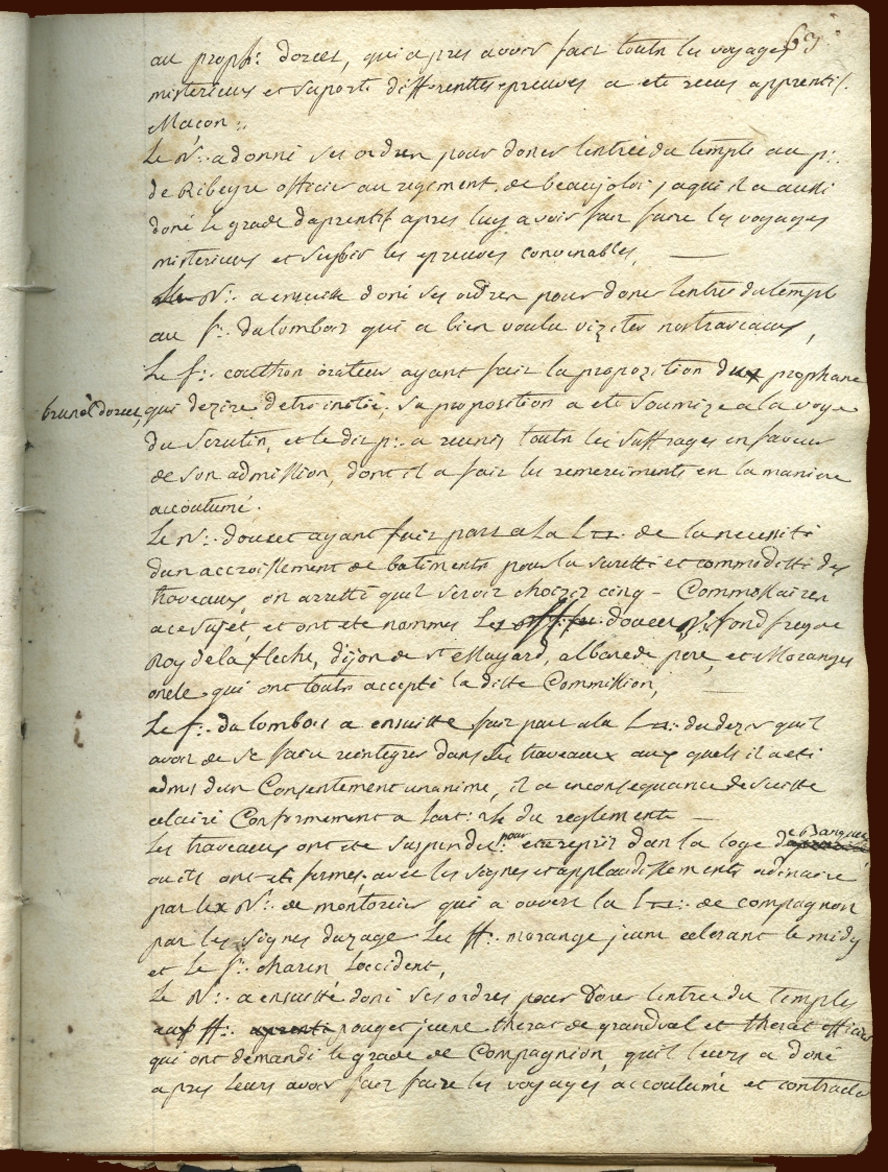 63
au proph∴ dorcet, qui apres avoir fait toutes les voyages
misterieux et suporté differenttes epreuves a eté recus apprentif
Maçon ∴
Le V∴ a donné ses ordren pour doner lentrée du temple au p∴
de Ribeyre officier au regiment de beaujoloi, aqui il a aussi
doné le grade daprentif apres luy avoir fait faire les voyages
misterieux et subir les epreuves convenables,
V∴ a ensuitte doné ses ordren pour doner lentrée du temple
au f∴ dulombois qui a bien voulu viziter nos traveaux,
Le f∴ couthon orateur ayant fait la propozition dun prophane
brunel dorcet, qui dezire detre initié, sa proposition a eté soumize a la voye
du Scrutin, et le dit p∴ a reunis toutes les suffrages en faveur
de son admission, dont il a fait les remerciments en la maniere
accoutumé.
Le V∴ doucet ayant fait part a la L∴ de la necessité
dun accroissement de batiments pour la suretté et commoditté des
traveaux, on arretté quil seroit choizir cinq - Commissaires
a ce sujet, et ont eté nommes Les doucet V∴ fondfreyde
Roy de la fleche, dijon de st Mayard, albarede pere, et Moranges
oncle qui ont toutes accepté la ditte Commission,
Le f∴ dulombois a ensuitte fait part a la L∴ du dezir quil
avoit de se faire reintegrer dans les traveaux aux quels il a eté
admis dun Consentement unanime, il a en consequance de suitte
éclairé Conformement a lart: du reglements
Les traveaux ont eté suspendus pour etre repris dan la loge de
ou ils ont eté fermes, avec les signes et applaudissements ordinaire
par le V∴ de montorcier qui a ouvert la L∴ de compagnon
par les signes duzage Les ff∴ morange jeune eclerant le midy
et le f∴ charen loccident,
Le V∴ a ensuitté doné ses ordres pour doner lentrée du temples
aux ff∴ aprenti pouget jeune therat de grandval et therat officier
qui ont demandé le grade de Compagnion, quil leurs a doné
apres leurs avoir fait faire les voyages accoutumé et contracter